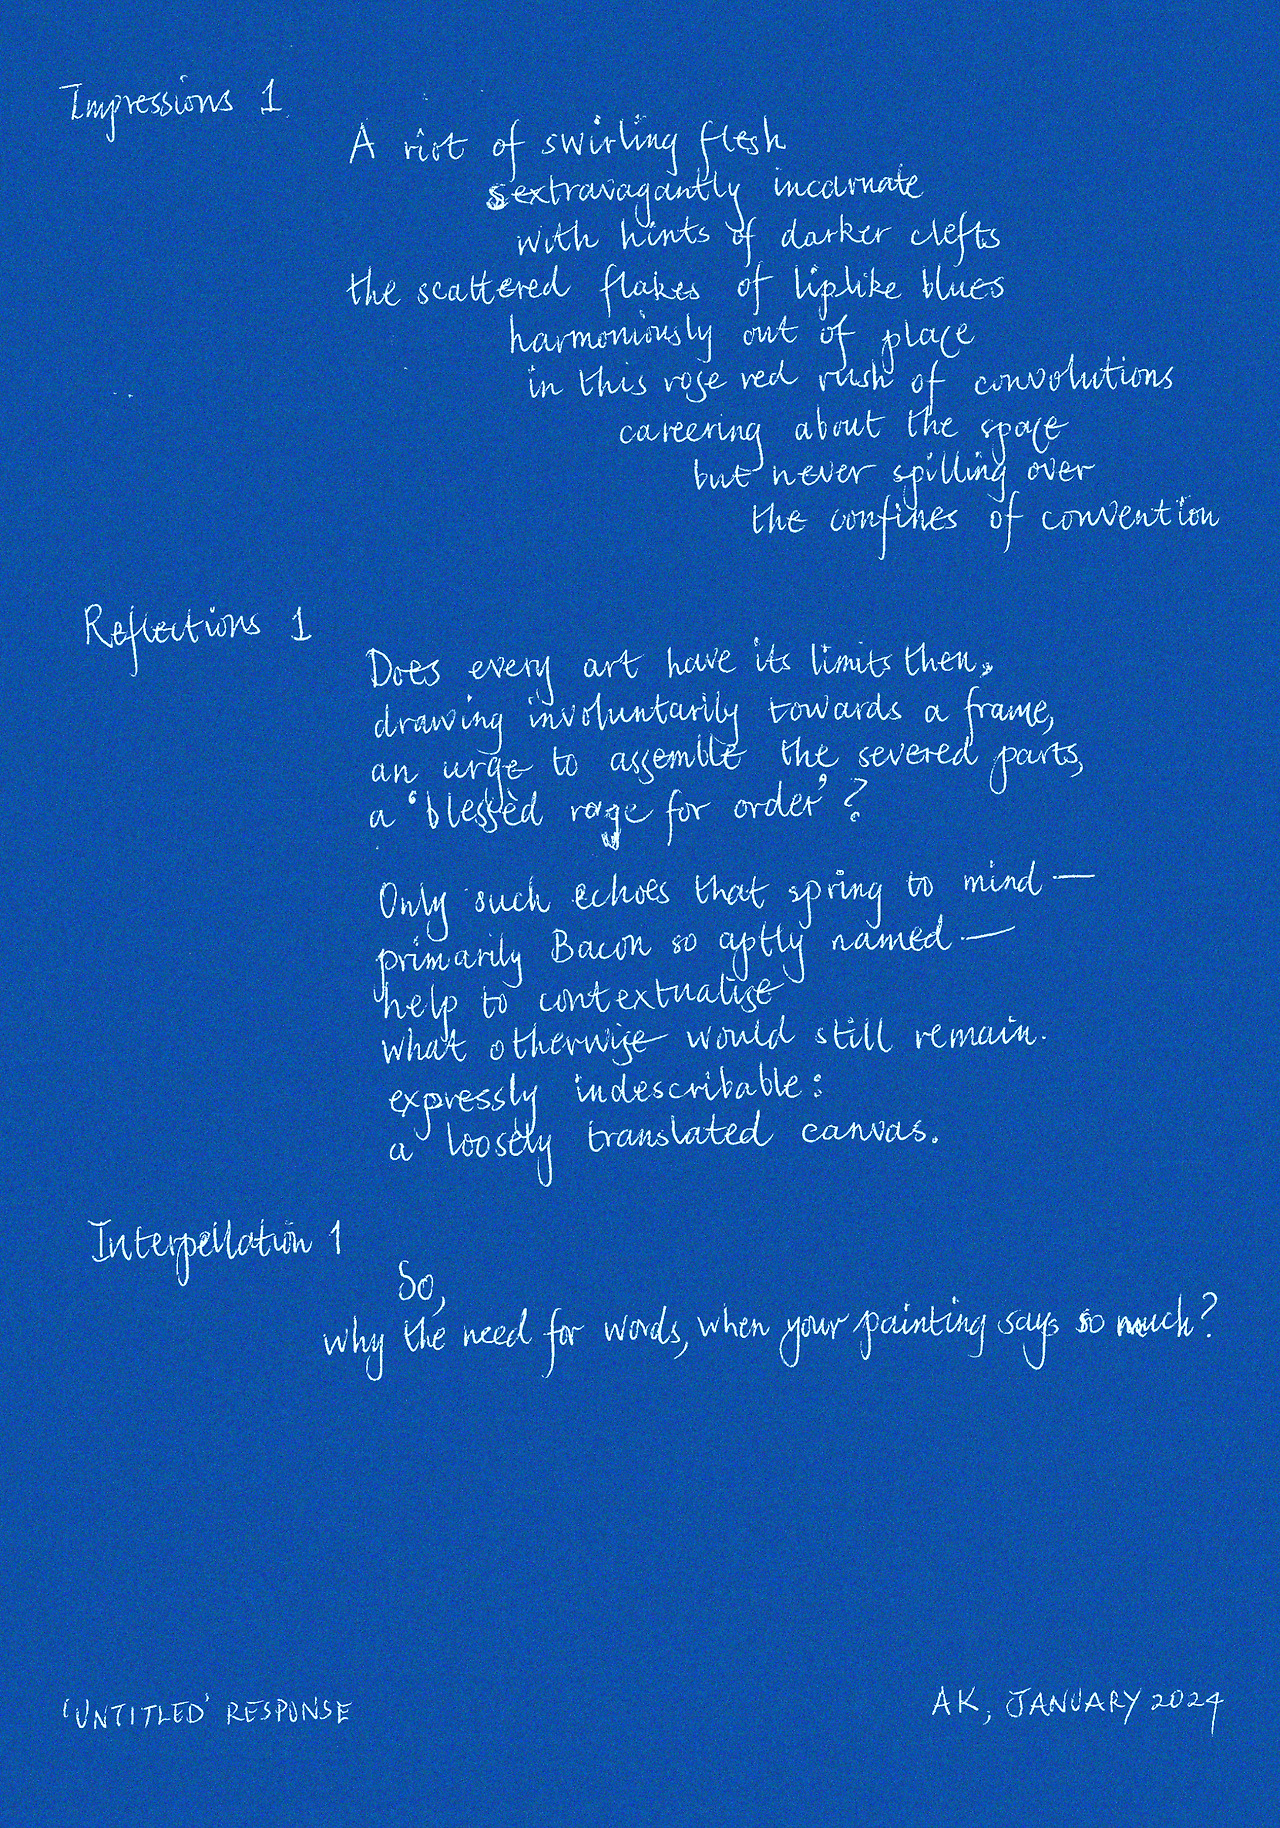 Impressions 1
A riot of swirling flesh
sextravagantly incarnate
with hints of darker clefts
the scattered flakes of liplike blues
harmoniously out of place
in this rose red rush of convolutions
careering about the space
but never spilling over
the confines of convention
Reflections 1
Does every art have its limits then,
drawing involuntarily towards a frame,
an urge to assemble the severed parts,
a ‘blessèd rage for order’?
Only such echoes that spring to mind —
primarily Bacon so aptly named —
help to contextualise
what otherwise would still remain
expressly indescribable:
a loosely translated canvas.
Interpellation 1
So,
why the need for words, when your painting says so much?
‘UNTITLED’ RESPONSE
AK, JANUARY 2024